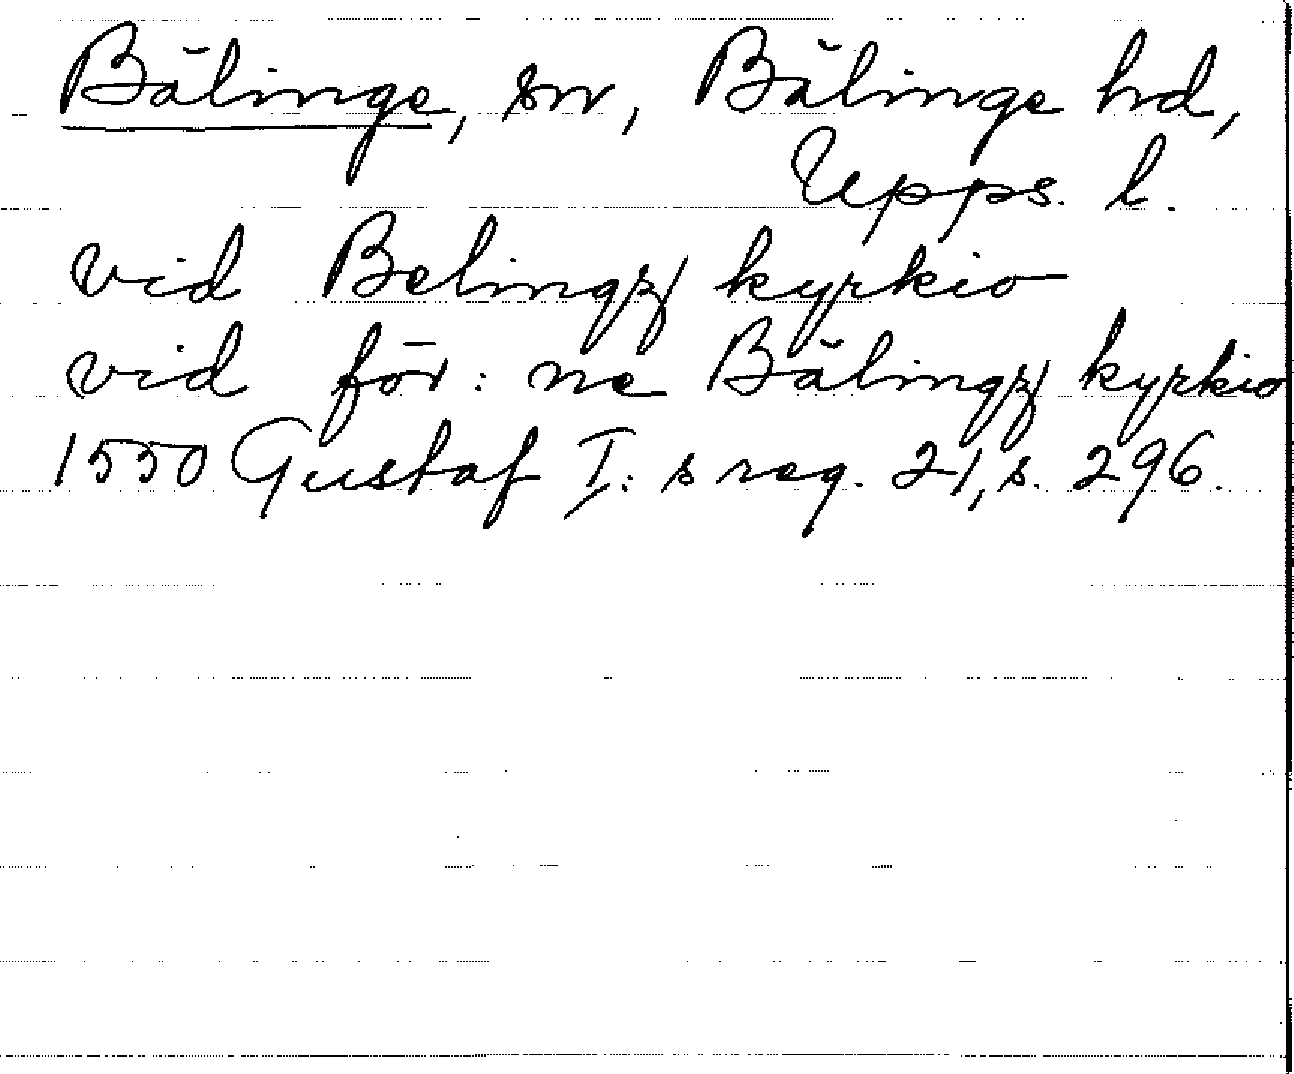 Bälinge, sn, Bälinge hd,
Upps. l.
vid Belingꝫ kyrkio
vid för: ne Bälingꝫ kyrkio
1550 Gustaf I: s reg. 21, s. 296.